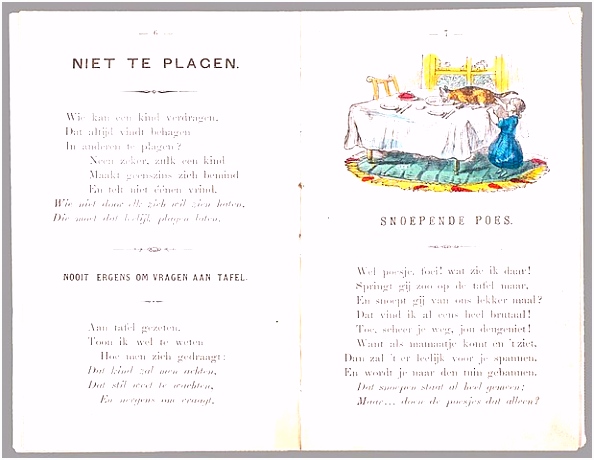 — 6 —
NIET TE PLAGEN.
Wie kan een kind verdragen,
Dat altijd vindt behagen
In anderen te plagen?
Neen zeker, zulk een kind
Maakt geenszins zich bemind
En telt niet éénen vrind.
Wie niet door elk zich wil zien haten,
Die moet dat leelijk plagen laten.
NOOIT ERGENS OM VRAGEN AAN TAFEL.
Aan tafel gezeten,
Toon ik wel te weten
Hoe men zich gedraagt:
Dat kind zal men achten,
Dat stil weet te wachten,
En nergens om vraagt.
— 7 —
SNOEPENDE POES.
Wel poesje, foei! wat zie ik daar!
Springt gij zoo op de tafel maar,
En snoept gij van ons lekker maal?
Dat vind ik al eens heel brutaal!
Toe, scheer je weg, jou deugeniet!
Want als mamaatje komt en 't ziet,
Dan zal 't er leelijk voor je spannen,
En wordt je naar den tuin gebannen.
Dat snoepen staat al heel gemeen;
Maar... doen de poesjes dat alleen?